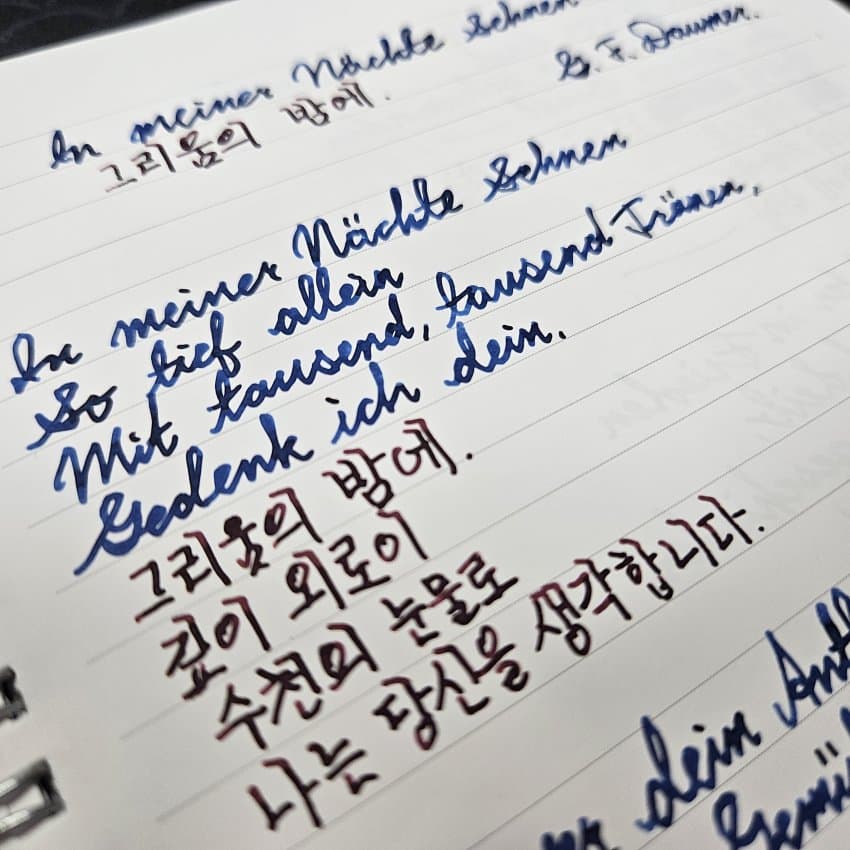 In meiner Nächte Sehnen
G. F. Daumer.
그리움의 밤에.
In meiner Nächte Sehnen
So tief allein
Mit tausend, tausend Tränen,
Gedenk ich dein.
그리움의 밤에.
깊이 외로이
수천의 눈물로
나는 당신을 생각합니다.
dein